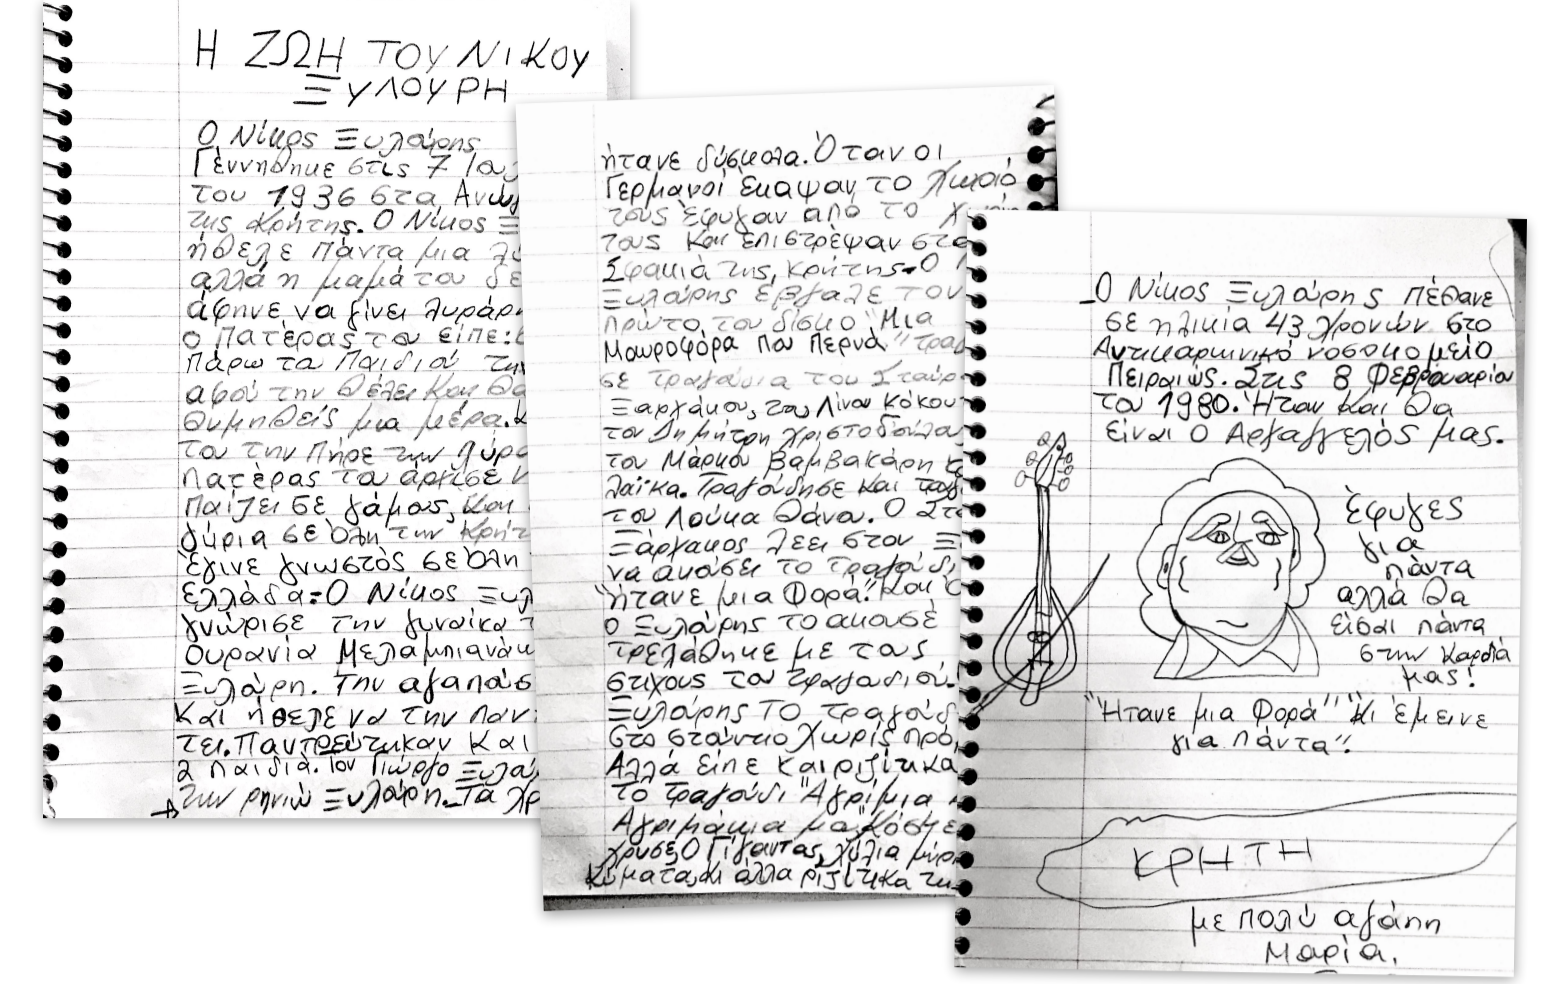 Η ΖΩΗ ΤΟΥ ΝΙΚΟΥ
ΞΥΛΟΥΡΗ
Ο Νίκος Ξυλούρης
Γέννηθηκε στις 7 Ιουλ
του 1936 στα Ανώγ
της Κρήτης. Ο Νίκος Ξ
ήθελε πάντα μια λύ
αλλά η μαμά του δε
άφηνε να γίνει λυράρη
ο Πατέρας του είπε:
πάρω τα Παιδιού την
αφού την θέλει Και θα
θυμηθείς μια μέρα. Κ
του την πήρε την λύρα
Πατέρας του άρχισε ν
Παίζει σε γάμους, και
γύρια σε όλη την Κρήτ
έγινε γνωστός σε όλη
Ελλάδα. Ο Νίκος Ξυλ
γνώρισε την γυναίκα τ
Ουρανία Μελαμπιανάκ
Ξυλούρη. Την αγαπούσ
Και ήθελε να την παν
τει. Παντρεύτικαν Και
2 παιδιά. Τον Γιώργο Ξυλού
την ρηνιώ Ξυλούρη. Τα χρ
ήτανε δύσκολα. Όταν οι
Γερμανοί έκαψαν το χωριό
τους έφυγαν από το χωριό
τους Και επιστρέψαν στα
Σφακιά της, Κρήτης. Ο
Ξυλούρης έβγαλε τον
πρώτο του δίσκο "Μια
Μαυροφόρα που Περνά" τραγ
σε τραγούδια του Σταύρ
Ξαρχάκου, του Λίνου Κόκου
του Δημήτρη Χριστοδούλου
του Μάρκου Βαμβακάρη
λαϊκα. Τραγούδησε και τραγ
του Λουκα Θάνου. Ο Στα
Ξάρχακος λεει στον Ξ
να ακούσει το τραγούδι
"ήτανε μια Φορά". Και ό
ο Ξυλούρης το ακουσέ
τρελάθηκε με τους
στιχους του τραγουδιού.
Ξυλούρης το τραγούδ
στο στούντιο χωρίς πρό
Αλλά είπε και ριζίτικα
το τραγούδι "Αγρίμια
Αγριμάκια μου", Κόσμε
χρυσέ, Ο Γίγαντας, χίλια μύρι
Κύματα, κι άλλα ριζίτικα τη
Ο Νίκος Ξυλούρης πέθανε
σε ηλικία 43 χρονών στο
Αντικαρκινικό νοσοκομείο
Πειραιώς. Στις 8 Φεβρουαρίου
του 1980. Ήταν και θα
είναι ο Αρχαγγελός μας.
έφυγες
για
πάντα
αλλά θα
είσαι πάντα
στην Καρδιά
μας!
"Ήτανε μια Φορά" "Κι έμεινε
για πάντα".
ΚΡΗΤΗ
με πολύ αγάπη
Μαρία.